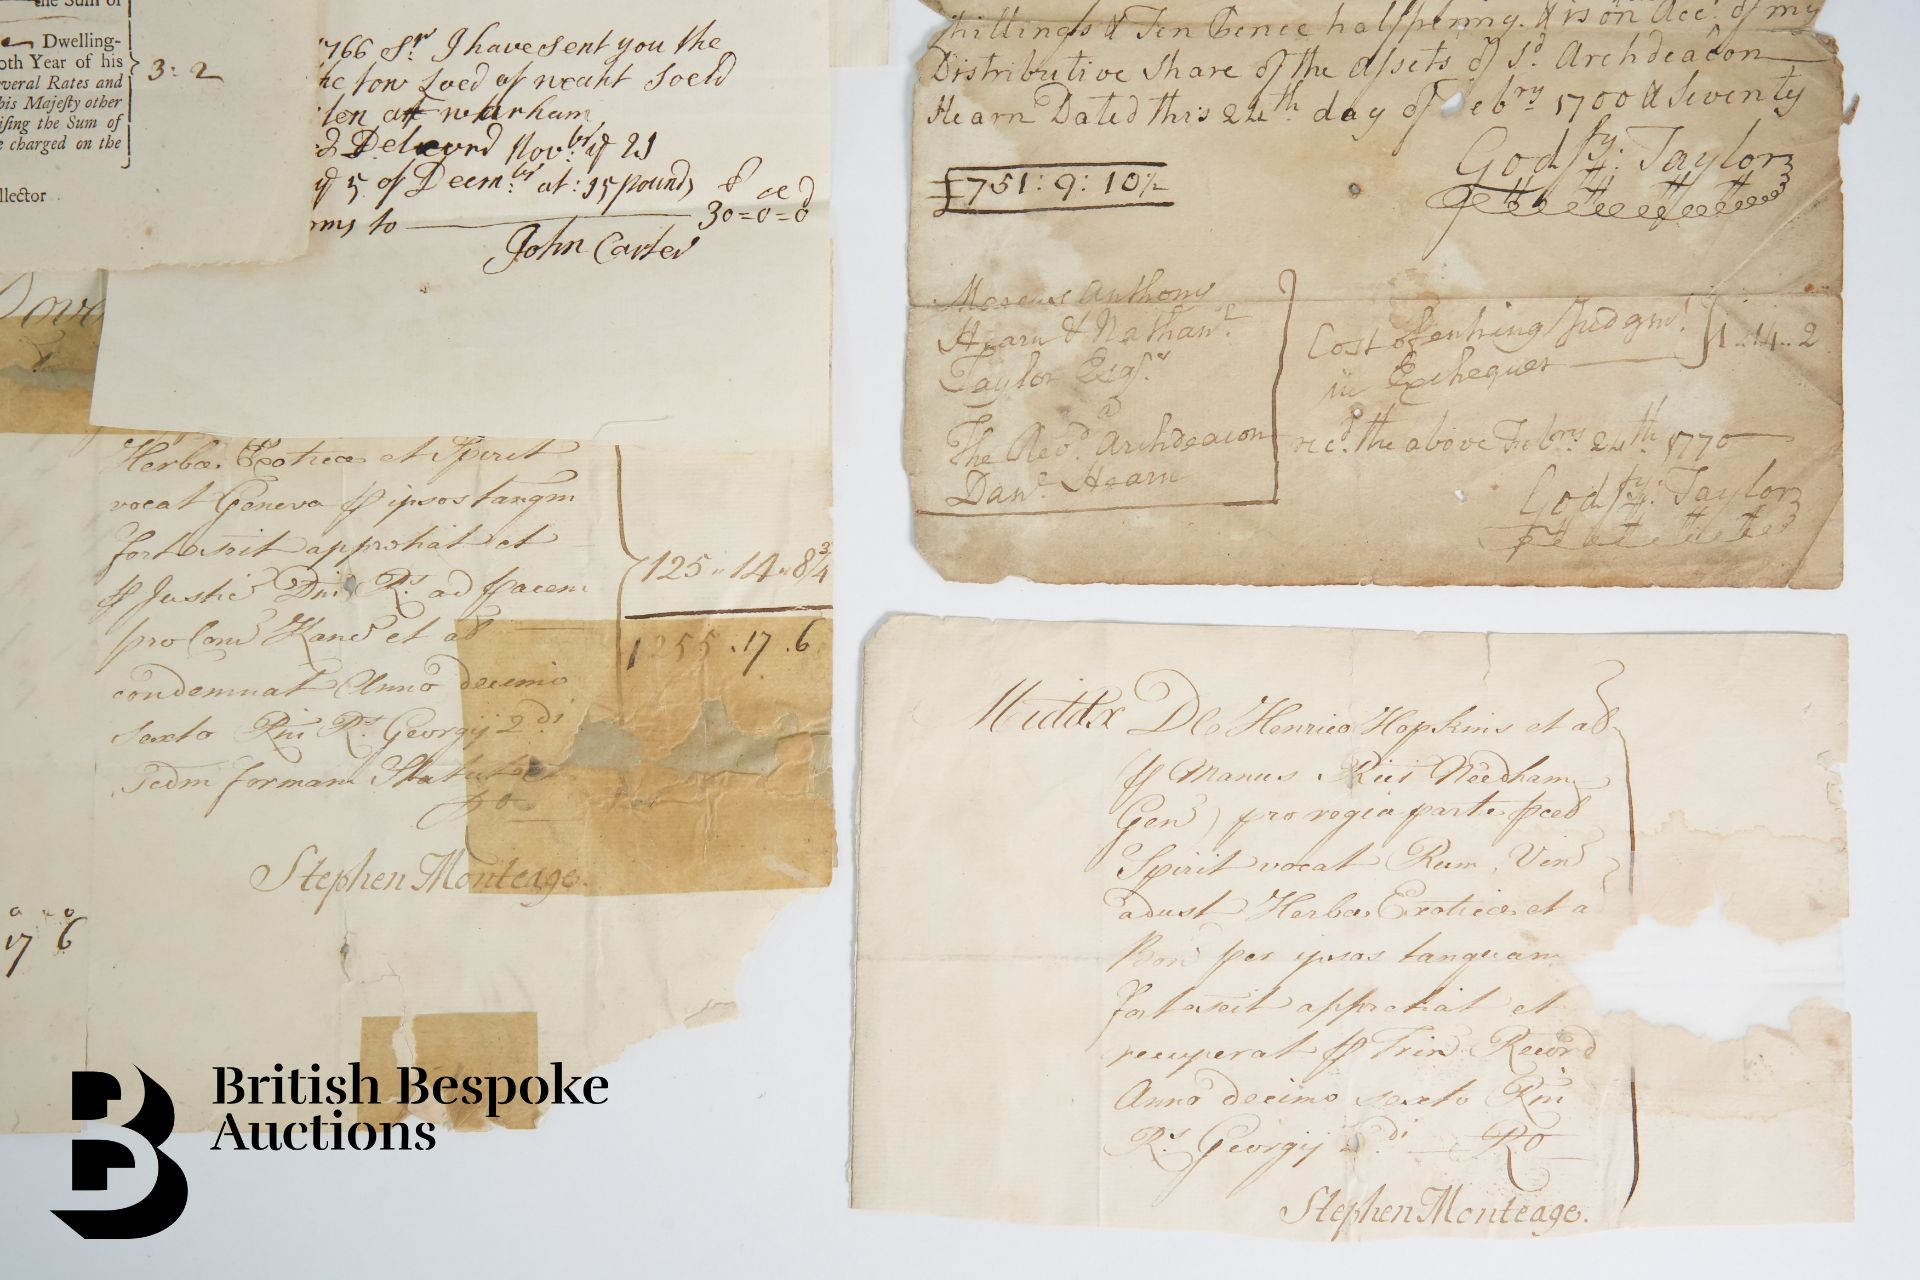 the Sum of
Dwelling-
oth Year of his
everal Rates and
his Majesty other
ising the Sum of
e charged on the
llector
3:2
1766 Sr I have sent you the
Soed of
len at warham
Delevord Novbr ye 21
ye 5 of Deembr at : 15 pounds
ms to 30=0=0
John Carter
Herbæ Exoticæ et Spirit
vocat Geneva p ipsos tangm
forisfacit appretiat et
p Justic Dni Rs ad pacem
pro Com Kanc et al
condemnat Anno decimo
sexto Rni Rs Georgij 2di
secdm formam Statut
125 .. 14 .. 8 3/4
1255 . 17 . 6
Stephen Monteage.
17 6
shillings & Ten Pence halfpenny. & is on Acct. of my
Distributive Share of the Assets of sd. Archdeacon
Hearn Dated this 24th day of Febry 1700 & Seventy
£751:9:10½
Godfy: Taylor
Marcus Anthony
Hearn & Nathanl
Taylor Esqr
The Revd. Archdeacon
Danl Hearn
Cost of entring Judgmt.
in Exchequer
1..14..2
recd. the above Febry 24th 1770
Godfy: Taylor
Middx De Henrico Hopkins et al
p Manus Rici Needham
Gen) pro regia parte pced
Spirit vocat Rum, Vin
adust Herbæ Exoticæ et a
Bon per ipsos tanquam
forisfacit appretiat et
recuperat p Trin Record
Anno decimo sexto Rni
Rs Georgij 2di
Stephen Monteage.
British Bespoke
Auctions